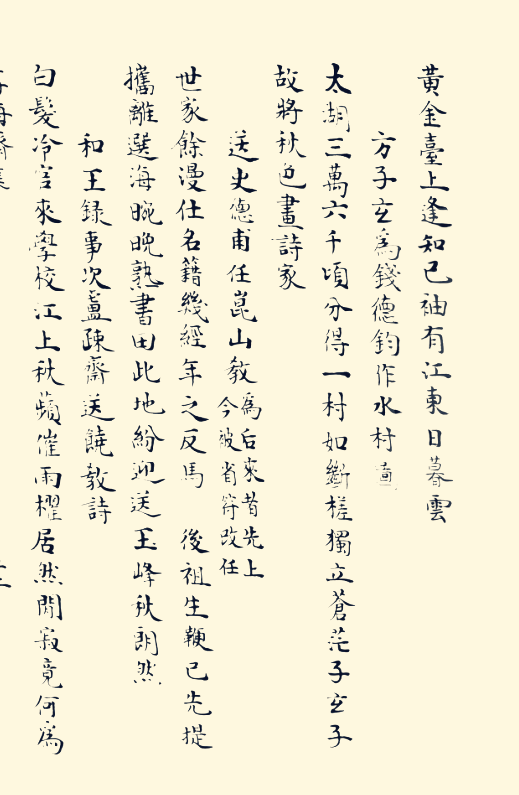 黃金臺上逢知已袖有江東日暮雲
方子玄為錢德鈞作水村
太湖三萬六千頃分得一村如斷槎獨立蒼茫子玄子
故將秋色畫詩家
送史德甫任崑山教為后來者先上今被省符改任
世家餘漫仕名籍幾經年之反馬 後祖生鞭已先提
攜離選海晼晚熟書田此地紛迎送玉峰秋朗然
和王録事次盧疎齋送饒教詩
白髮冷官來學校江上秋蘋催雨櫂居然閒寂竟何為